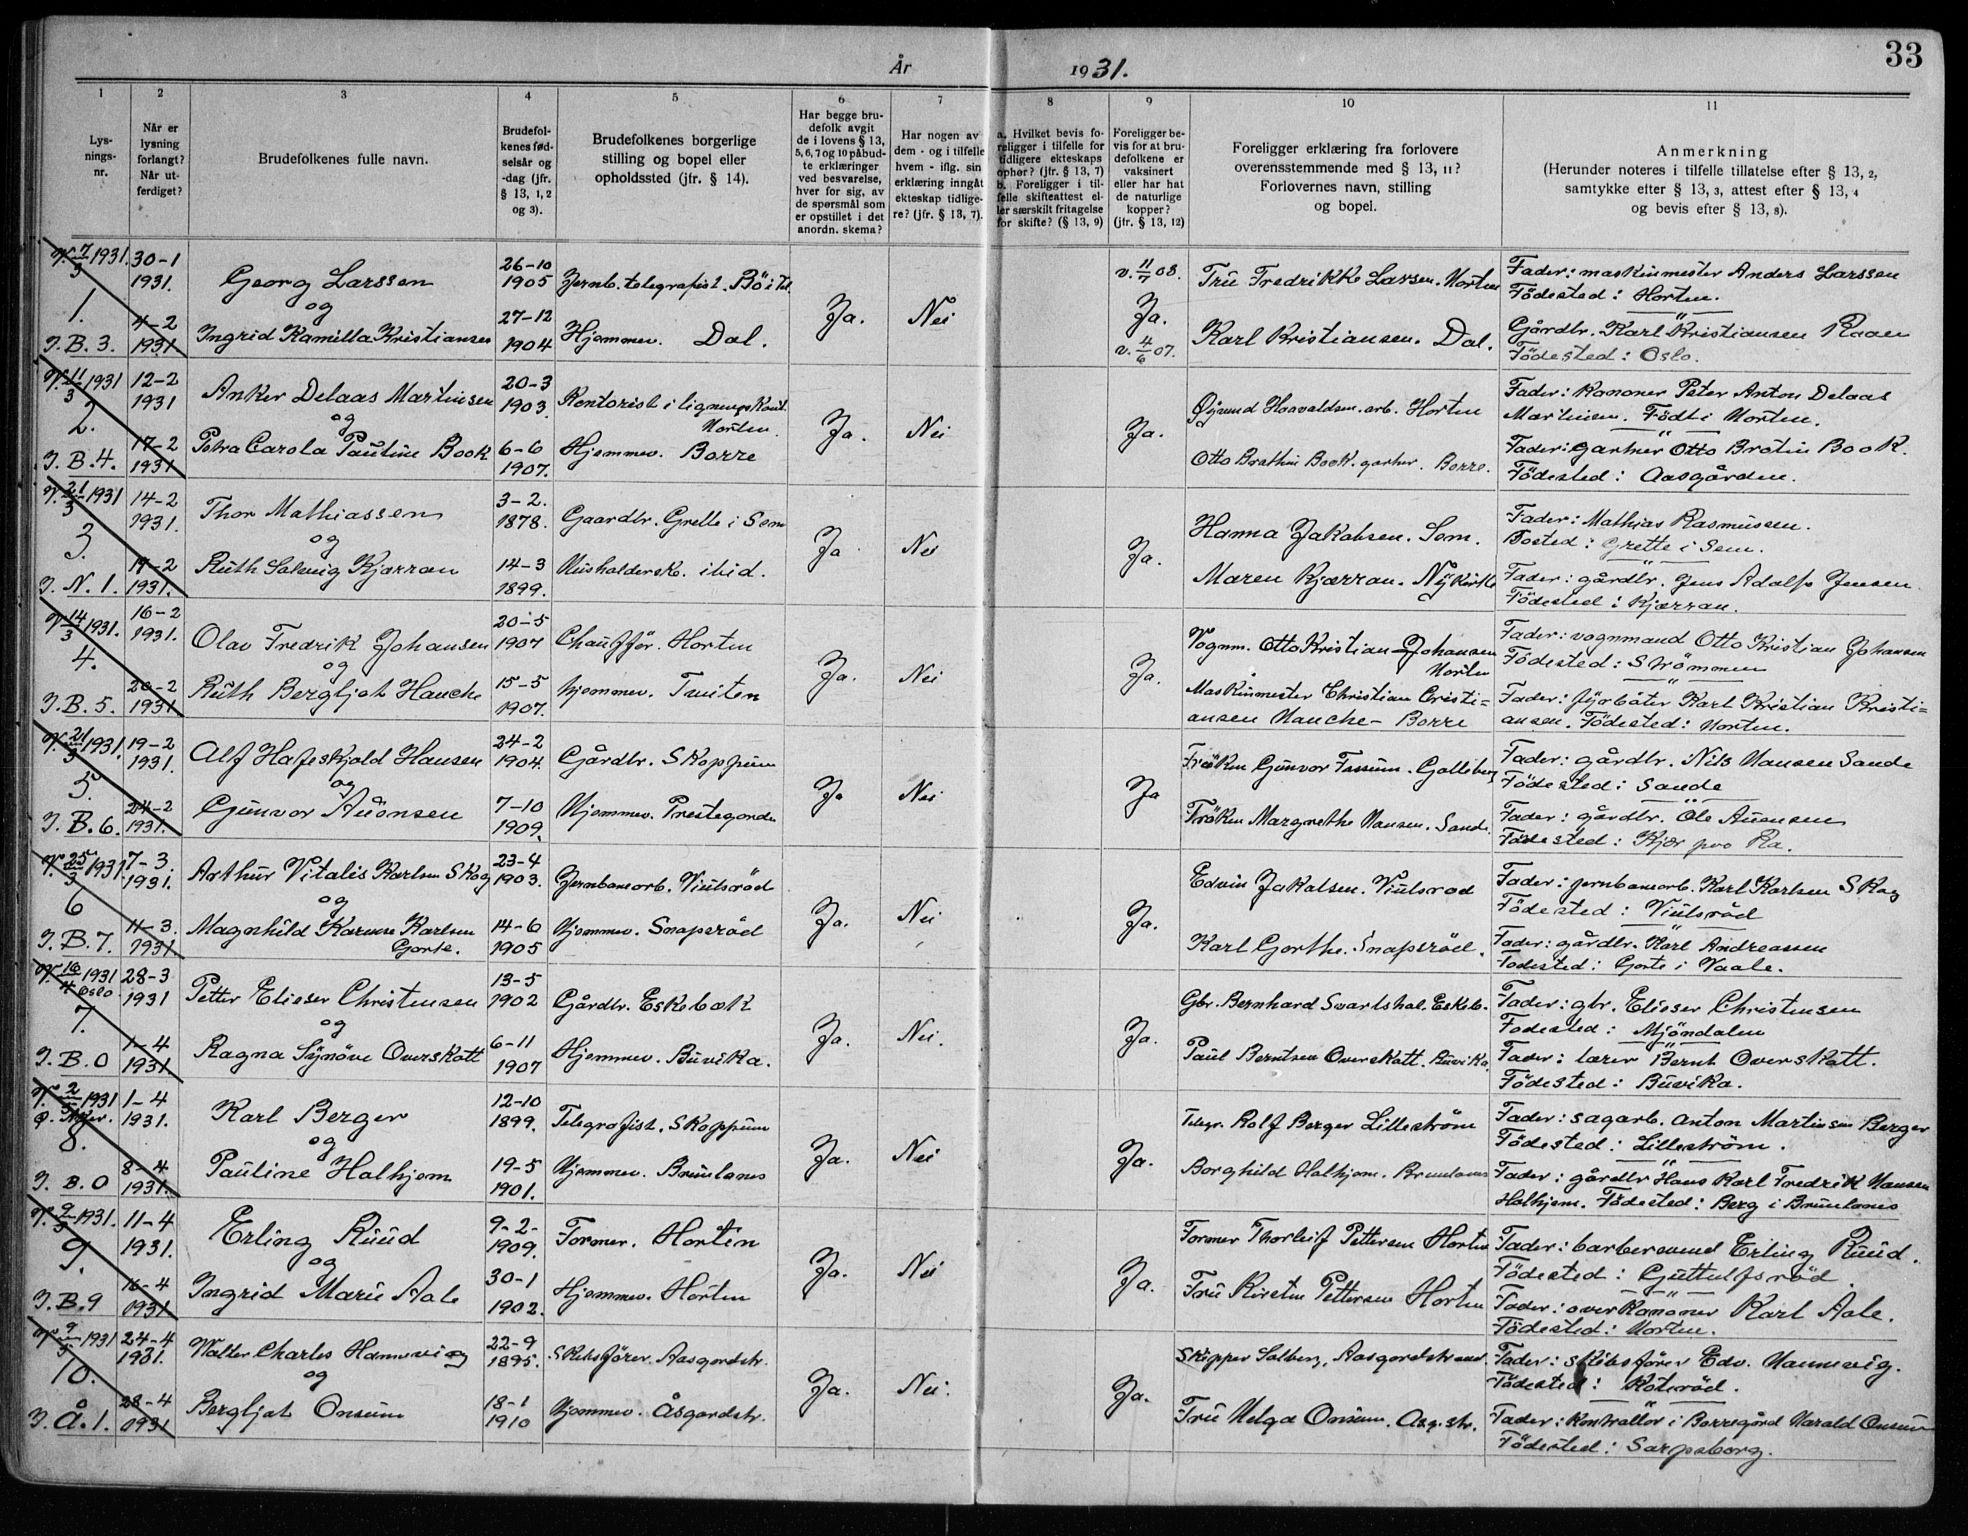 33
År 1931.
1 2 3 4 5 6 7 8 9 10 11
Lys-
nings-
nr.
Når er
lysning
forlangt?
Når ut-
ferdiget?
Brudefolkenes fulle navn.
Brudefol-
kenes fød-
selsår og
-dag (jfr.
§ 13, 1, 2
og 3).
Brudefolkenes borgerlige
stilling og bopel eller
opholdssted (jfr. § 14).
Har begge bru-
defolk avgit
de i lovens § 13,
5, 6, 7 og 10 påbud-
te erklæringer
ved besvarelse,
hver for sig, av
de spørsmål som
er opstillet i det
anordn. skema?
Har nogen av
dem - og i tilfelle
hvem - iflg. sin
erklæring inngåt
ekteskap tidlige-
re? (jfr. § 13, 7).
a. Hvilket bevis fo-
religger i tilfelle for
tidligere ekteskaps
ophør? (jfr. § 13, 7)
b. Foreligger i til-
felle skifteattest el-
ler særskilt fritagelse
for skifte? (§ 13, 9)
Foreligger be-
vis for at bru-
defolkene er
vaksinert
eller har hat
de naturlige
kopper?
(jfr. § 13, 12)
Foreligger erklæring fra forlovere
overensstemmende med § 13, 11?
Forlovernes navn, stilling
og bopel.
Anmerkning
(Herunder noteres i tilfelle tillatelse efter § 13, 2,
samtykke efter § 13, 3, attest efter § 13, 4
og bevis efter § 13, 8).
V. 7/3 1931. 30-1 1931. Georg Larssen 26-10 1905 Jernb. telegrafist. Bö i Tel. v. 11/7 08. Fru Fredrikke Larsen. Horten Fader: maskinmester Anders Larssen
Födested: Horten.
1. og Ja. Nei Ja.
J.B. 3. 4-2 1931. Ingrid Kamilla Kristiansen 27-12 1904 Hjemmev. Dal. v. 4/6 07. Karl Kristiansen. Dal. Gårdbr. Karl Kristiansen Raaen
Födested: Oslo.
V. 11/3 1931 12-2 1931 Anker Delaas Martinsen 20-3 1903. Kontorist i ligningskont. Horten. Öyvind Haavaldsen. arb. Horten Fader: Kanoner Peter Anton Delaas
Martinsen. Födt i Horten.
2. og Ja. Nei Ja.
J.B. 4. 17-2 1931 Petra Carola Pauline Book 6-6 1907. Hjemmev. Borre Otto Brathin Book. gartner. Borre. Fader: Gartner Otto Bratin Book.
Födested: Aasgården.
V. 21/3 1931 14-2 1931. Thor Mathiassen 3-2. 1878. Gaardbr. Grette i Sem Hanna Jakobsen. Sem. Fader: Mathias Rasmussen.
Bosted: Grette i Sem.
3. og Ja Nei Ja.
J. N. 1. 1931. Ruth Solveig Kjærran 14-3 1899. Husholderske. ibid. Maren Kjærran. Nykirke Fader: gårdbr. Jens Adolf Jensen
Födested: Kjærran.
V. 14/3 1931. 16-2 1931. Olav Fredrik Johansen 20-5 1907 Chauffør. Horten Vognm. Otto Kristian Johansen
Horten Fader: vognmand Otto Kristian Johansen
Födested: Strömmen
4. og Ja. Nei Ja.
J.B. 5. 20-2 1931 Ruth Bergljot Hauche 15-5 1907. hjemmev. Tveiten Maskinmester Christian Cristi=
ansen Hauche - Borre Fader: fyrböter Karl Kristian Kristi=
ansen. Födested: Horten.
V. 21/3 1931. 19-2 1931. Alf Hafskjold Hansen 24-2 1904. Gårdbr. Skoppum Fröken Gunvor Fossum. Galleberg Fader: gårdbr. Nils Hansen Sande
Födested: Sande
5. og Ja Nei Ja
J.B. 6. 24-2 1931. Gunvor Auensen 7-10 1909. Hjemmev. Prestegorden Fröken Margrethe Hansen. Sande. Fader: gårdbr. Ole Auensen
Födested: Kjær paa Ra.
V. 25/3 1931. 7-3. 1931. Arthur Vitalis Karlsen Skog 23-4 1903. Jernbanearb. Viulsröd Edvin Jakobsen. Viulsrod Fader: jernbanearb. Karl Karlsen Skog
Födested: Viulsröd
6 og Ja. Nei Ja.
J.B. 7. 11-3. 1931 Magnhild Karense Karlsen
Gorte. 14-6 1905 Hjemmev. Snapsröd Karl Gorthe. Snapsröd. Fader: gårdbr. Karl Andreassen
Fodested: Gorte i Vaale.
V. 16/4 1931 Oslo 28-3 1931 Petter Elieser Christensen 13-5 1902 Gårdbr. Eskebæk Gbr. Bernhard Svartshal. Eskeb. Fader: gbr. Elieser Christensen
Fodested: Mjöndalen
7. og Ja. Nei. Ja.
J.B. 0 1-4 1931 Ragna Synöve Overskott 6-11 1907 Hjemmev. Buvika. Paul Berntsen Overskott. Buvika. Fader: lærer Bernt Overskott.
Födested: Buvika.
V. 2/5 1931 1-4 1931. Karl Berger 12-10 1899. Telegrafist. Skoppum Telegr. Rolf Berger Lilleström Fader: sagarb. Anton Martinsen Berger
Födested: Lilleström.
8. og Ja. Nei Ja.
J. B. 0 8-4 1931. Pauline Halhjem 19-5 1901. Hjemmev. Brunlanes Borghild Halhjem. Brunlanes Fader: gårdbr Hans Karl Fredrik Hansen
Halhjem. Födested: Berg i Brunlanes
V. 9/5 1931. 11-4 1931. Erling Ruud 9-2- 1909. Former. Horten Former Thorleif Pettersen Horten Fader: barbersvend Erling Ruud.
Födested: Guttulfsröd.
9. og Ja. Nei Ja.
J.B. 9 16-4 1931 Ingrid Marie Aale 30-1 1902. Hjemmev. Horten Fru Kirsten Pettersen Horten Fader: overkanoner Karl Aale.
Födested: Horten.
V. 9/5 1931 24-4 1931. Walter Charles Hannevig 22-9 1895. Skibsfører. Aasgordstr. Skipper Solberg, Aasgordstrand. Fader: skibsfører Edv. Hannevig.
Födested: Roteröd.
10. og Ja. Nei. Ja.
J. Å. 1. 28-4 1931 Bergljot Onsum 18-1 1910 Hjemmev. Åsgordstr. Fru Helga Onsum. Asg.str. Fader: Kontrollör i Borregård Harald Onsum
Födested: Sarpsborg.